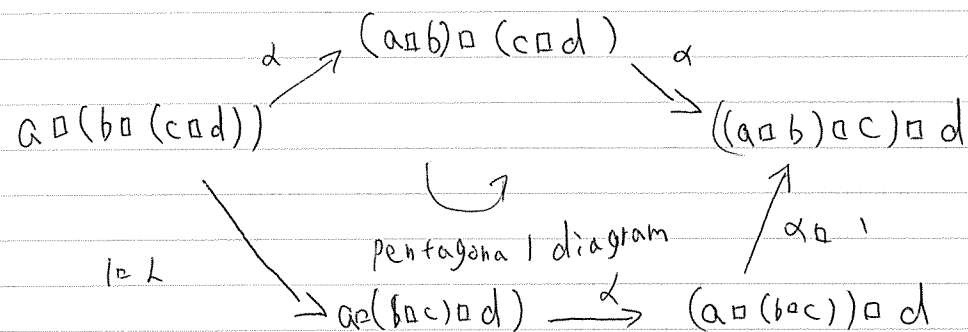 (a□b)□(c□d)
α α
a□(b□(c□d)) ((a□b)□c)□d
pentagonal diagram
1□α α□1
a□((b□c)□d) α (a□(b□c))□d